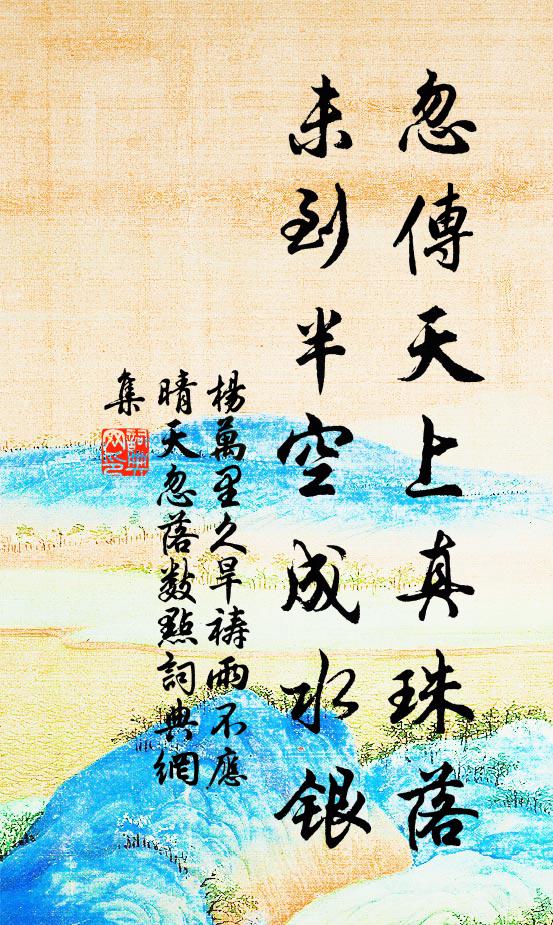 忽傳天上真珠落
未到半空成水銀
楊萬里久旱禱雨不應
晴天忽落數點詞典網
集